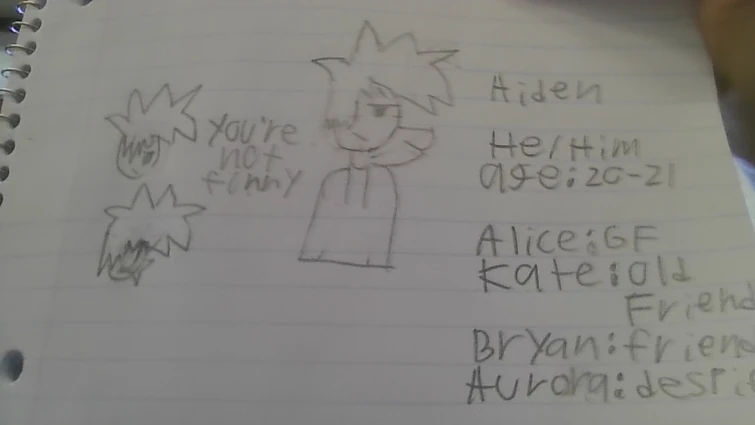 You're
not
finny
Aiden
He/Him
age:20-21
Alice:GF
Kate:old
Friend
Bryan:friend
Aurora: